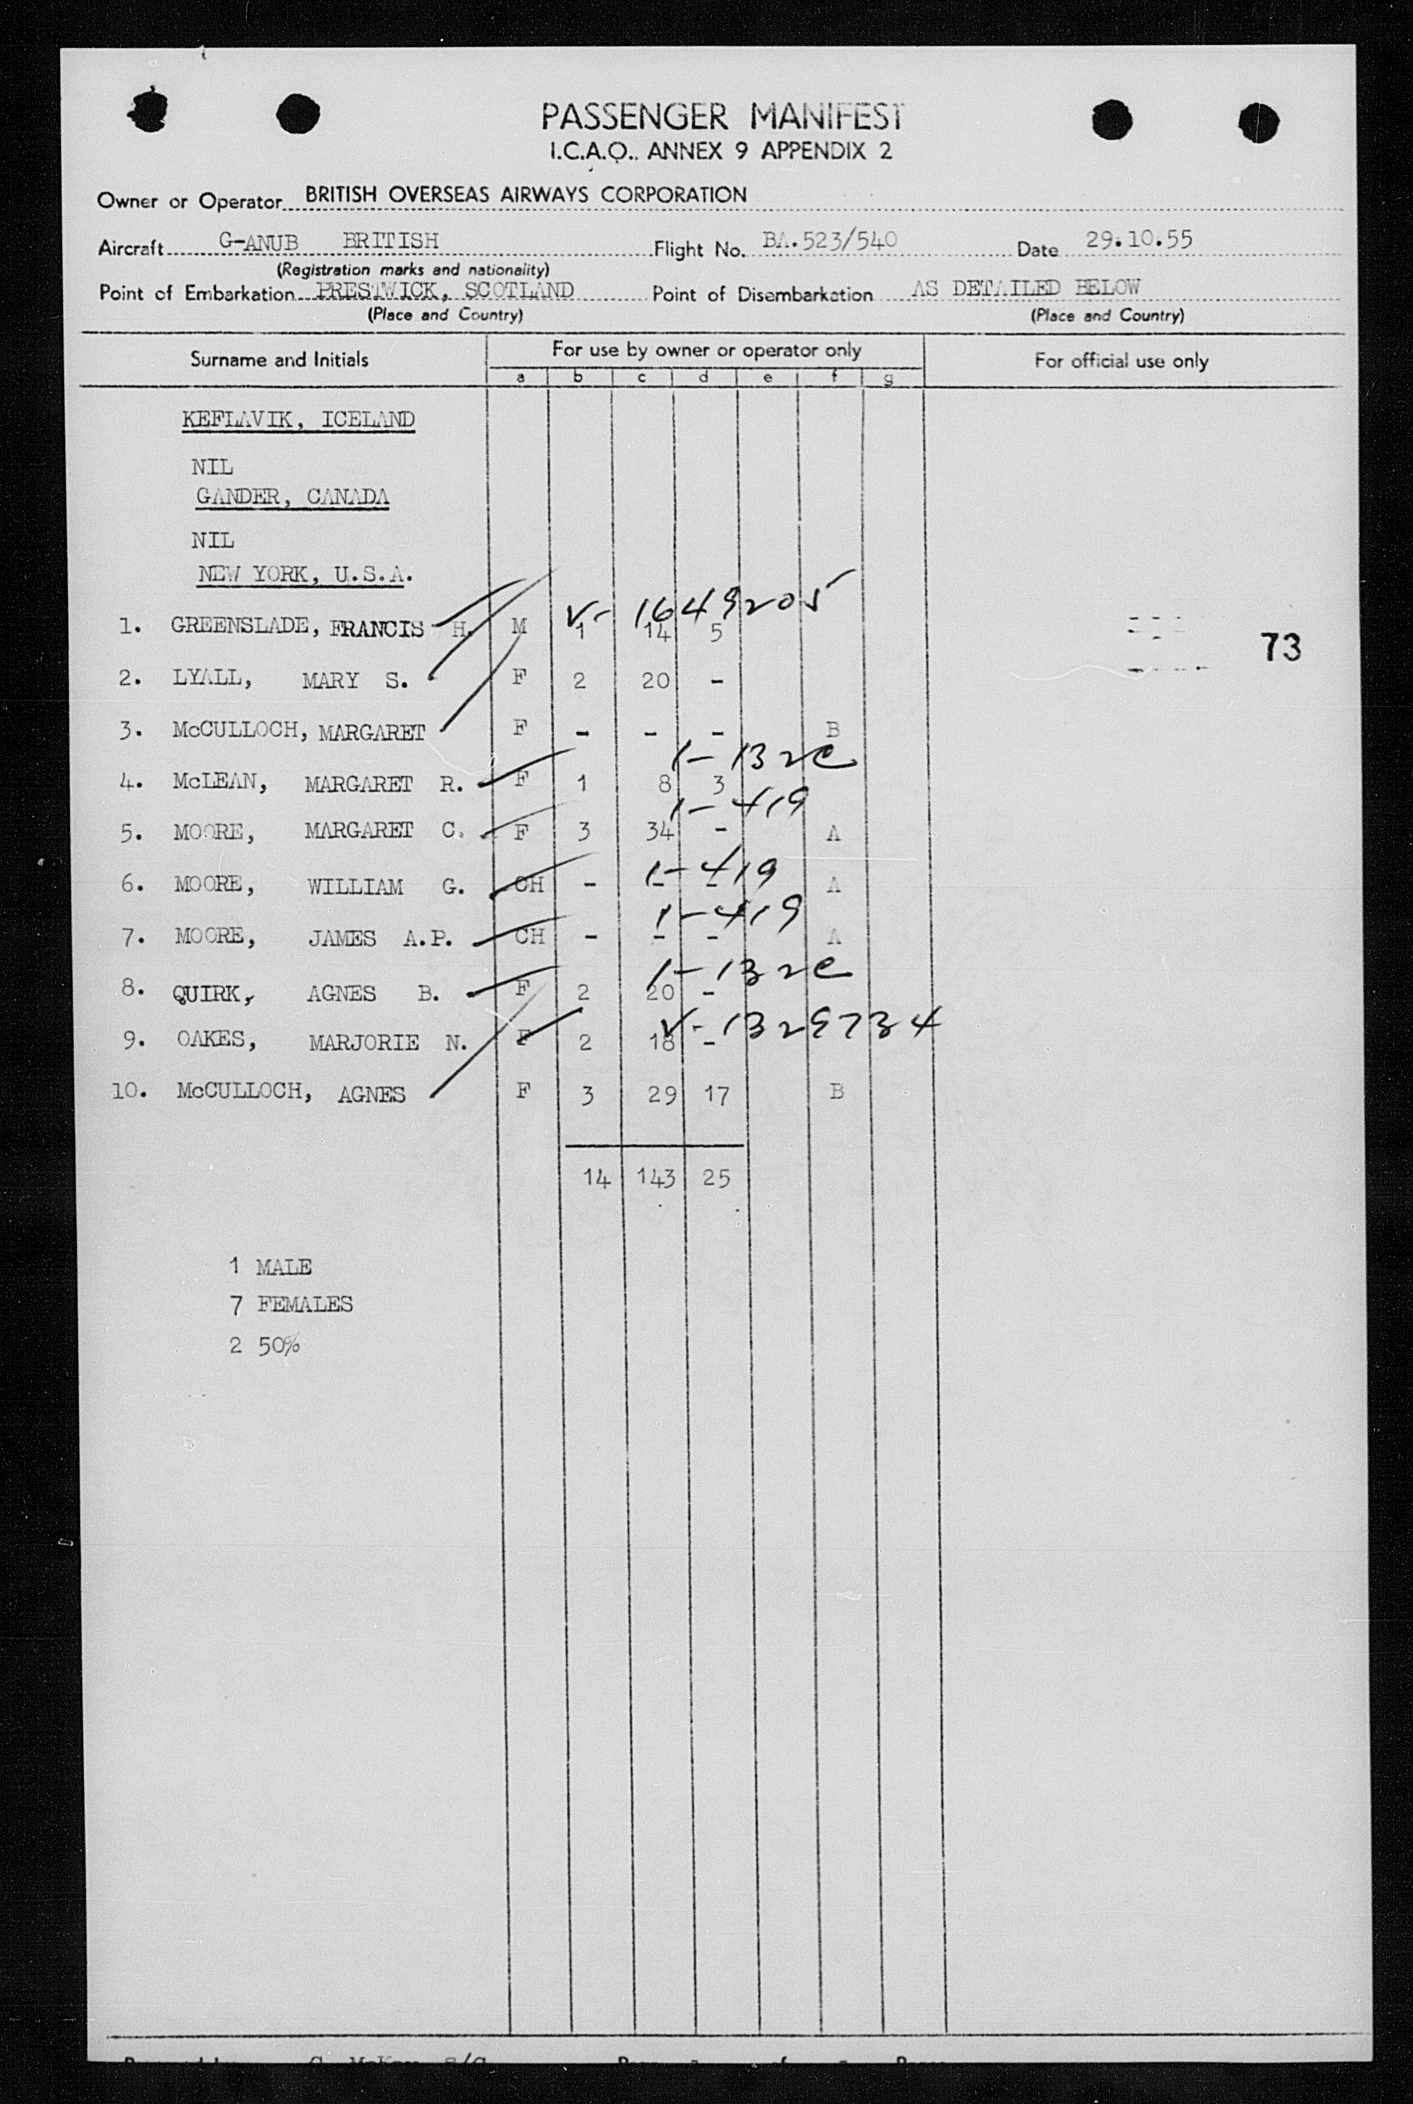 PASSENGER MANIFEST
I.C.A.O.. ANNEX 9 APPENDIX 2
Owner or Operator BRITISH OVERSEAS AIRWAYS CORPORATION
Aircraft G-ANUB BRITISH Flight No. BA.523/540 Date 29.10.55
(Registration marks and nationality)
Point of Embarkation PRESTWICK, SCOTLAND Point of Disembarkation AS DETAILED BELOW
(Place and Country) (Place and Country)
Surname and Initials For use by owner or operator only For official use only
a b c d e f g
KEFLAVIK, ICELAND
NIL
GANDER, CANADA
NIL
NEW YORK, U.S.A.
V-1649205
1. GREENSLADE, FRANCIS H. M 1 14 5
73
2. LYALL, MARY S. F 2 20 -
3. McCULLOCH, MARGARET F - - - B
1-132c
4. McLEAN, MARGARET R. F 1 8 3
1-419
5. MOORE, MARGARET C. F 3 34 - A
1-419
6. MOORE, WILLIAM G. CH - - - A
1-419
7. MOORE, JAMES A.P. CH - - - A
1-132c
8. QUIRK, AGNES B. F 2 20 -
V-1329734
9. OAKES, MARJORIE N. F 2 18 -
10. McCULLOCH, AGNES F 3 29 17 B
14 143 25
1 MALE
7 FEMALES
2 50%